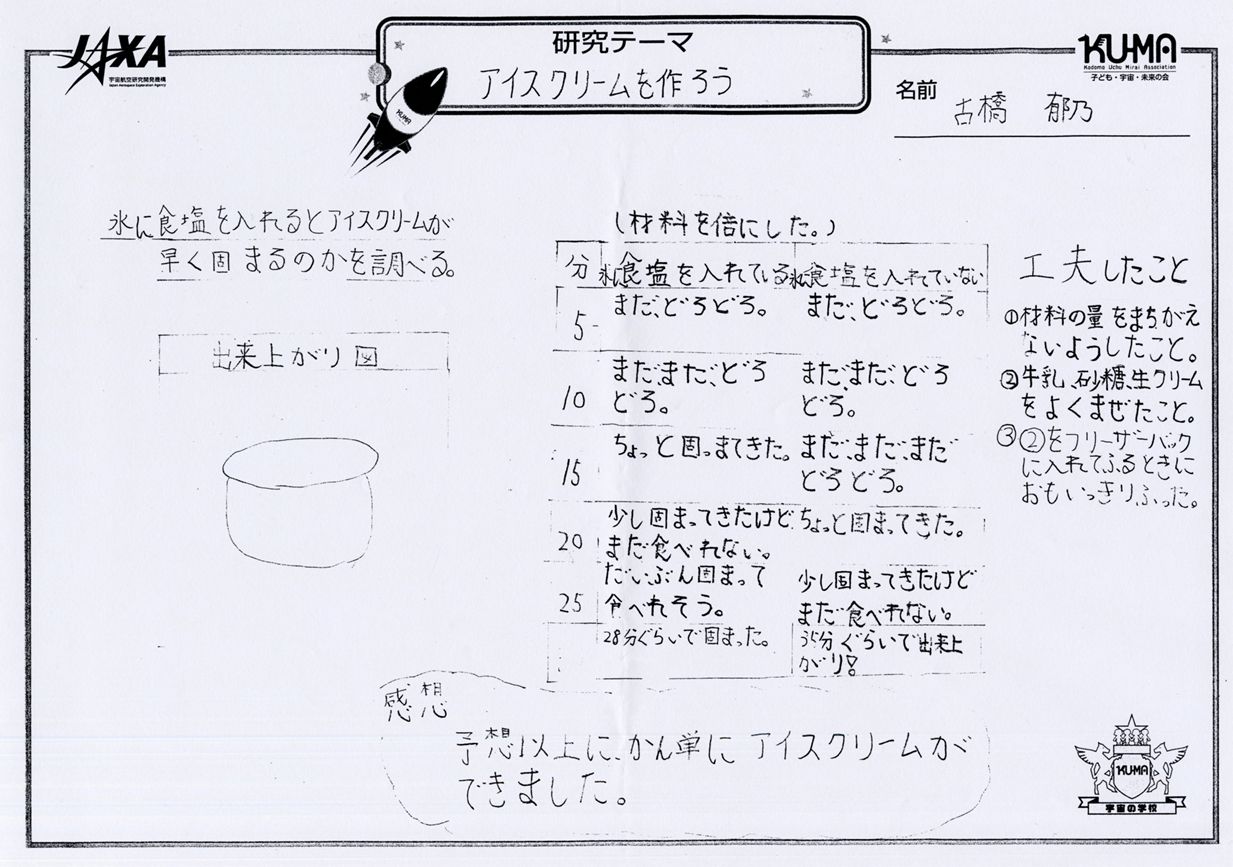 JAXA
宇宙航空研究開発機構
Japan Aerospace Exploration Agency
研究テーマ
アイスクリームを作ろう
KUMA
KU-MA
Kodomo Uchu Mirai Association
子ども・宇宙・未来の会
名前
古橋 郁乃
氷に食塩を入れるとアイスクリームが
早く固まるのかを調べる。
出来上がり図
(材料を倍にした。)
分 氷に食塩を入れている 氷に食塩を入れていない
5 まだ、どろどろ。 まだ、どろどろ。
10 まだ、まだ、どろ まだ、まだ、どろ
どろ。 どろ。
15 ちょっと固まてきた。 まだ、まだ、まだ
どろどろ。
20 少し固まってきたけど ちょっと固まってきた。
まだ食べれない。
25 だいぶん固まって 少し固まってきたけど
食べれそう。 まだ食べれない。
28分ぐらいで固まった。 35分ぐらいで出来上
がり!
工夫したこと
①材料の量をまちがえ
ないようしたこと。
②牛乳、砂糖、生クリーム
をよくまぜたこと。
③②をフリーザーバック
に入れてふるときに
おもいっきりふった。
感想
予想以上に、かん単にアイスクリームが
できました。
KU-MA
宇宙の学校